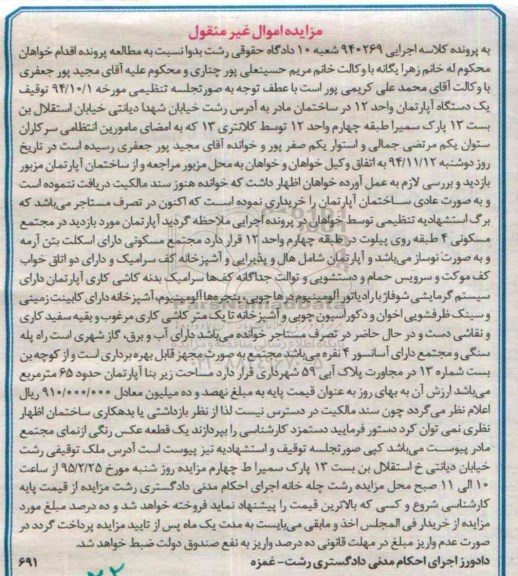 مزایده اموال غیر منقول
به پرونده کلاسه اجرایی ۹۴۰۲۶۹ شعبه ۱۰ دادگاه حقوقی رشت بدوا نسبت به مطالعه پرونده اقدام خواهان
محکوم له خانم زهرا یگانه با وکالت خانم مریم حسینعلی پور چناری و محکوم علیه آقای مجید پور جعفری
با وکالت آقای محمد علی کریمی پور است با عطف توجه به صورتجلسه تنظیمی مورخه ۹۴/۱۰/۱ توقیف
یک دستگاه آپارتمان واحد ۱۲ در ساختمان مادر به آدرس رشت خیابان شهدا دیانتی خیابان استقلال بن
بست ۱۳ پارک سمیرا طبقه چهارم واحد ۱۲ توسط کلانتری ۱۳ که به امضای مامورین انتظامی سرکاران
ستوان یکم مرتضی جمالی و استوار یکم صفر پور و خوانده آقای مجید پور جعفری رسیده است در تاریخ
روز دوشنبه ۹۴/۱۱/۱۲ به اتفاق وکیل خواهان و خواهان به محل مزبور مراجعه و از ساختمان آپارتمان مزبور
بازدید و بررسی لازم به عمل آورده خواهان اظهار داشت که خوانده هنوز سند مالکیت دریافت ننموده است
و به صورت عادی ساختمان آپارتمان را خریداری نموده است که اکنون در تصرف مستاجر می‌باشد که
برگ استشهادیه تنظیمی توسط خواهان در پرونده اجرایی ملاحظه گردید آپارتمان مورد بازدید در مجتمع
مسکونی ۴ طبقه روی پیلوت در طبقه چهارم واحد ۱۲ قرار دارد مجتمع مسکونی دارای اسکلت بتن آرمه
و به صورت نوساز می‌باشد و آپارتمان شامل هال و پذیرایی و آشپزخانه کف سرامیک و دارای دو اتاق خواب
کف موکت و سرویس حمام و دستشویی و توالت جداگانه کف‌ها سرامیک بدنه کاشی کاری آپارتمان دارای
سیستم گرمایشی شوفاژ با رادیاتور آلومینیوم، درها چوبی، پنجره‌ها آلومینیوم، آشپزخانه دارای کابینت زمینی
و سینک ظرفشویی اخوان و دکوراسیون چوبی و آشپزخانه تا یک متر کاشی کاری مرغوب و بقیه سفید کاری
و نقاشی دست و در حال حاضر در تصرف مستاجر خوانده می‌باشد دارای آب و برق، گاز شهری است راه پله
سنگی و مجتمع دارای آسانسور ۴ نفره می‌باشد مجتمع به صورت مجهز قابل بهره برداری است و از کوچه بن
بست شماره ۱۳ در مجاورت پلاک آبی ۵۹ شهرداری قرار دارد مساحت زیر بنا آپارتمان حدود ۶۵ مترمربع
می‌باشد ارزش آن به بهای روز به عنوان قیمت پایه به مبلغ نهصد و ده میلیون معادل ۹۱۰/۰۰۰/۰۰۰ ریال
اعلام نظر می‌گردد چون سند مالکیت در دسترس نیست لذا از نظر بازداشتی یا بدهکاری ساختمان اظهار
نظری نمی توان کرد دستور فرمایید دستمزد کارشناسی را بپردازند یک قطعه عکس رنگی از نمای مجتمع
مادر پیوست می‌باشد کپی صورتجلسه توقیف و استشهادیه نیز پیوست است آدرس ملک توقیفی رشت
خیابان دیانتی خ استقلال بن بست ۱۳ پارک سمیرا ط چهارم مزایده روز شنبه مورخ ۹۵/۲/۲۵ از ساعت
۱۰ الی ۱۱ صبح محل مزایده رشت چله خانه اجرای احکام مدنی دادگستری رشت مزایده از قیمت پایه
کارشناسی شروع و کسی که بالاترین قیمت را پیشنهاد نماید فروخته خواهد شد و ده درصد مبلغ مورد
مزایده از خریدار فی المجلس اخذ و مابقی می‌بایست به مدت یک ماه پس از تایید مزایده پرداخت گردد در
صورت عدم واریز مبلغ در مهلت قانونی ده درصد واریز به نفع صندوق دولت ضبط خواهد شد.
دادورز اجرای احکام مدنی دادگستری رشت - غمزه
۶۹۱
۲۲